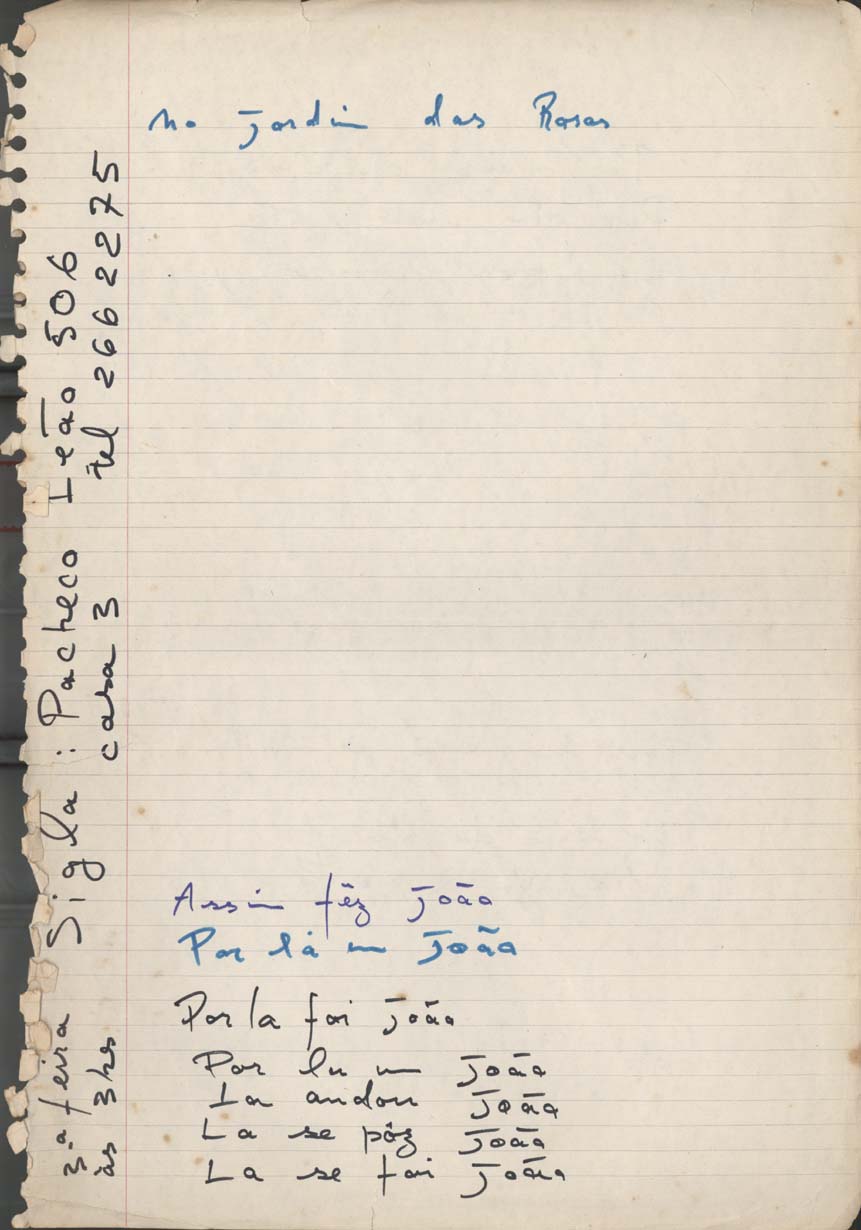 no jardim das Rosas
Assim fêz João
Por lá um João
Por la foi João
Por la um João
La andou João
La se pôz João
La se foi João
3.ª feira Sigla : Pacheco Leão 506
às 3hs casa 3 tel 266 2275